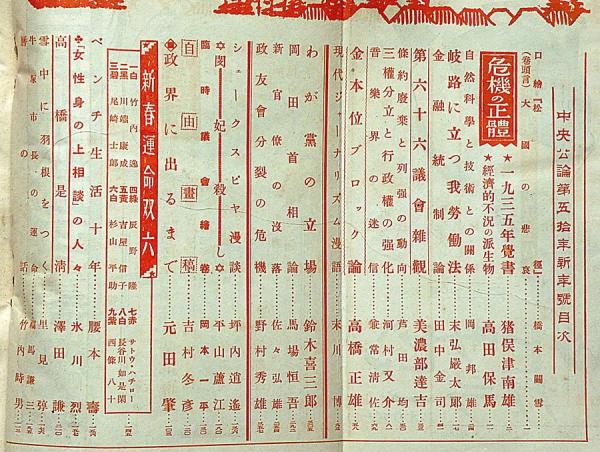 中央公論第五拾年新年號目次
口繪『松徑』 橋本關雪
(卷頭言) 大國の悲哀
危機の正體
★一九三五年覺書 猪俣津南雄
★經濟的不況の派生物 高田保馬
自然科學と技術との關係 岡邦雄
岐路に立つ我勞働法 末弘嚴太郎
金融統制論 田中金司
第六十六議會雜觀 美濃部達吉
條約廢棄と列强の動向 芦田均
三權分立と行政權の强化 河村又介
音樂界の迷信 兼常清佐
金本位ブロック論 高橋正雄
現代ジャーナリズム漫語 末川博
わが黨の立場 鈴木喜三郎
岡田首相論 馬場恒吾
新官僚の沒落 佐々弘雄
政友會分裂の危機 野村秀雄
シェークスピヤ漫談 坪内逍遙
閔妃殺し 平山蘆江
臨時議會繪卷 岡本一平
自由畫稿 吉村冬彥
政界に出るまで 元田肇
新春運命双六
一白 竹内逸
二黑 川端康成
三碧 尾崎士郎
四綠 辰野隆
五黃 吉屋信子
六白 杉山平助
七赤 サトウ・ハチロー
八白 長谷川如是閑
九紫 西條八十
ペンチ生活十年 腰本壽
『女性身の上相談』の人々 氷川烈
高橋是淸 澤田謙
雪中に羽根をつく 里見弴
牛塚市長の運命
の話 竹内時男